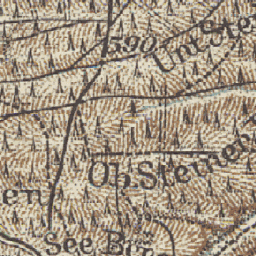 590
Unt.Ste
Ob.Steiner
en
See B